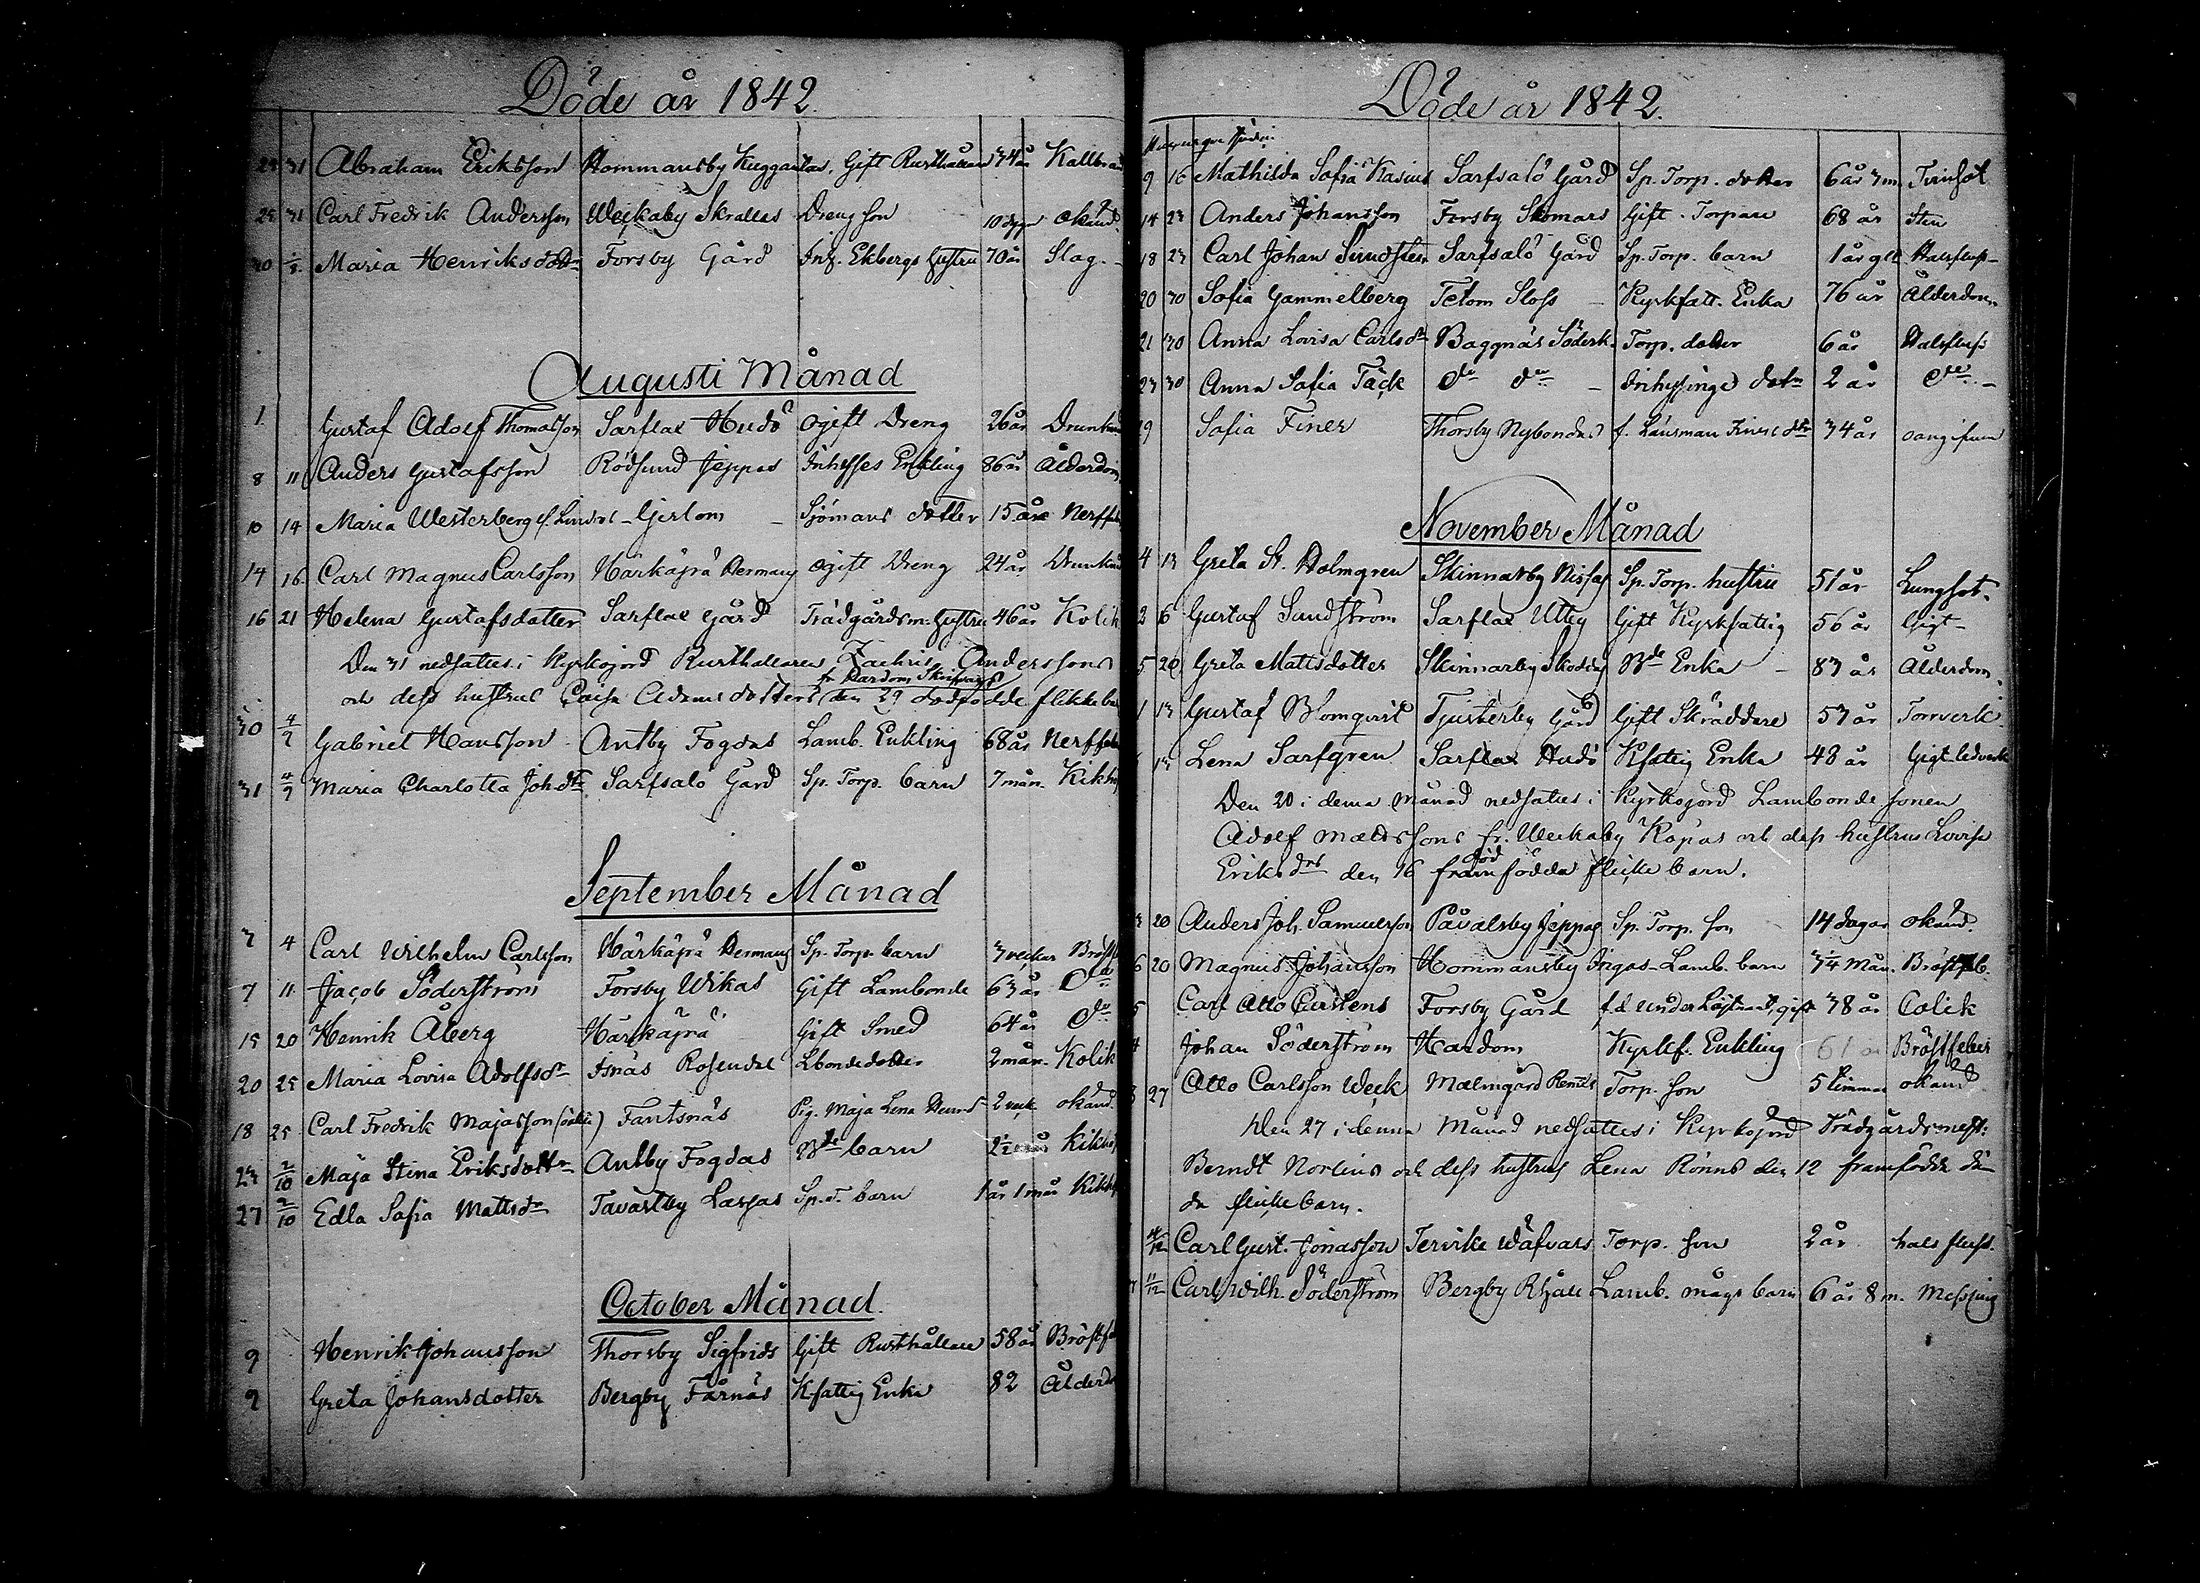 Döde år 1842.
29 31 Abraham Eriksson Hommansby Kuggas Gift Rusthållare 74 år Kallbrand
29 31 Carl Fredrik Andersson Weckaby Skrallas Dreng son 10 dygn okänd.
30 Maria Henriksdotr Forsby Gård Inh. Ekbergs hustru 70 år Slag.
Augusti Månad
1. Gustaf Adolf Thomasson Sarflax Hudö ogift Dreng 26 år
8 11 Anders Gustafsson Rödsund Jeppas Inhysses Enkling 86 år Ålderdom
10 14 Maria Westerberg Gislom Sjömans dotter 15 år
14 16 Carl Magnus Carlsson Härkäpä Hermans ogift Dreng 24 år
16 21 Helena Gustafsdotter Sarflax Gård Trädgårdsm. hustru 46 år Kolik
Den 31 nedsattes i Kyrkojord Rusthållaren Zachris Anderssons
fr Hardom
och dess hustrus Caisa Adamsdotters den 29 dödfödde flickebarn
30 4/9 Gabriel Hansson Antby Fogdas Lamb. Enkling 68 år
31 4/9 Maria Charlotta Joh.dtr Sarfsalö Gård Sp. Torp. barn 7 mån. Kikh
September Månad
3 4 Carl Wilhelm Carlsson Härkäpä Hermans Sp. Torp. barn 3 veckor
7 11 Jacob Söderström Forsby Wikas Gift Lambonde 63 år do
15 20 Henrik Åberg Härkäpä Gift Smed 64 år do
20 25 Maria Lovisa Adolfsdr Isnäs Rosendal Lbondedotter 2 mån. Kolik
18 25 Carl Fredrik Majasson (oäkta) Fantsnäs Pig. Maja Lena 2 veck okänd.
23 2/10 Maja Stina Eriksdottr Antby Fogdas Bde barn 2½ Kikh
27 2/10 Edla Sofia Mattsdr Tavastby Lassas Sp. T. barn 1 år 1 mån Kikh
October Månad.
9 Henrik Johansson Thorsby Sigfrids Gift Rusthållare 58 år Bröstf
9 Greta Johansdotter Bergby Fårnäs Kfattig Enka 82 Ålderd
Döde år 1842.
9 16 Mathilda Sofia Kasius Sarfsalö Gård Sp. Torp. dotter 6 år 3 m. Tvinsot
14 23 Anders Johansson Forsby Skomars Gift Torpare 68 år Sten
18 23 Carl Johan Sundsten Sarfsalö Gård Sp. Torp. barn 1 år gl. Halsfluss
20 30 Sofia Gammelberg Tetom Sloss Kyrkfatt. Enka 76 år Ålderdom
21 30 Anna Lovisa Carlsdr Baggnäs Söderk. Torp. dotter 6 år Halsfluss
23 30 Anna Sofia Täck do do Inhysinge dotr 2 år do
29 Sofia Finer Thorsby Nybondas f. Länsman Finers dtr 34 år oangifven
November Månad
4 13 Greta St. Holmgren Skinnarby Nissas Sp. Torp. hustru 51 år Lungsot.
2 6 Gustaf Sundström Sarflax Utby Gift Kyrkfattig 56 år Gigt
5 20 Greta Mattsdotter Skinnarby Skoddas Bde Enka 83 år Ålderdom.
1 13 Gustaf Blomqvist Tjusterby Gård Gift Skräddare 53 år Torrverk
13 Lena Sarfgren Sarflax Hudö Kfattig Enka 48 år Gigt-ledverk
Den 20 i denna månad nedsattes i Kyrkojord Lambonde sonen
Adolf Mattssons fr. Weckaby Kopas och dess hustrus Lovisa
död
Eriksdrs den 16 framfödda flicke barn.
20 Anders Joh. Samuelsson Påvalsby Jeppas Sp. Torp. son 14 dagar okänd.
6 20 Magnus Johansson Hommansby Ingas Lamb. barn 3¼ Mån. Bröstfeb.
5 Carl Otto Carstens Forsby Gård f.d. underlöjtnant, gift 78 år Colik
4 Johan Söderström Hardom Kyrkf. Enkling 61 år Bröstfeber
27 Otto Carlsson Weck Malmgård Torp. son 5 timmar okänd
Den 27 i denna Månad nedsattes i Kyrkojord Trädgårdsmest:
Berndt Norlins och dess hustrus Lena Rönns den 12 framfödda dö
da flickebarn.
4/12 Carl Gust. Jonasson Tervike Wäfvars Torp. son 2 år halsfluss.
11/12 Carl Wilh. Söderström Bergby Lamb. mågs barn 6 år 8 m. Messling